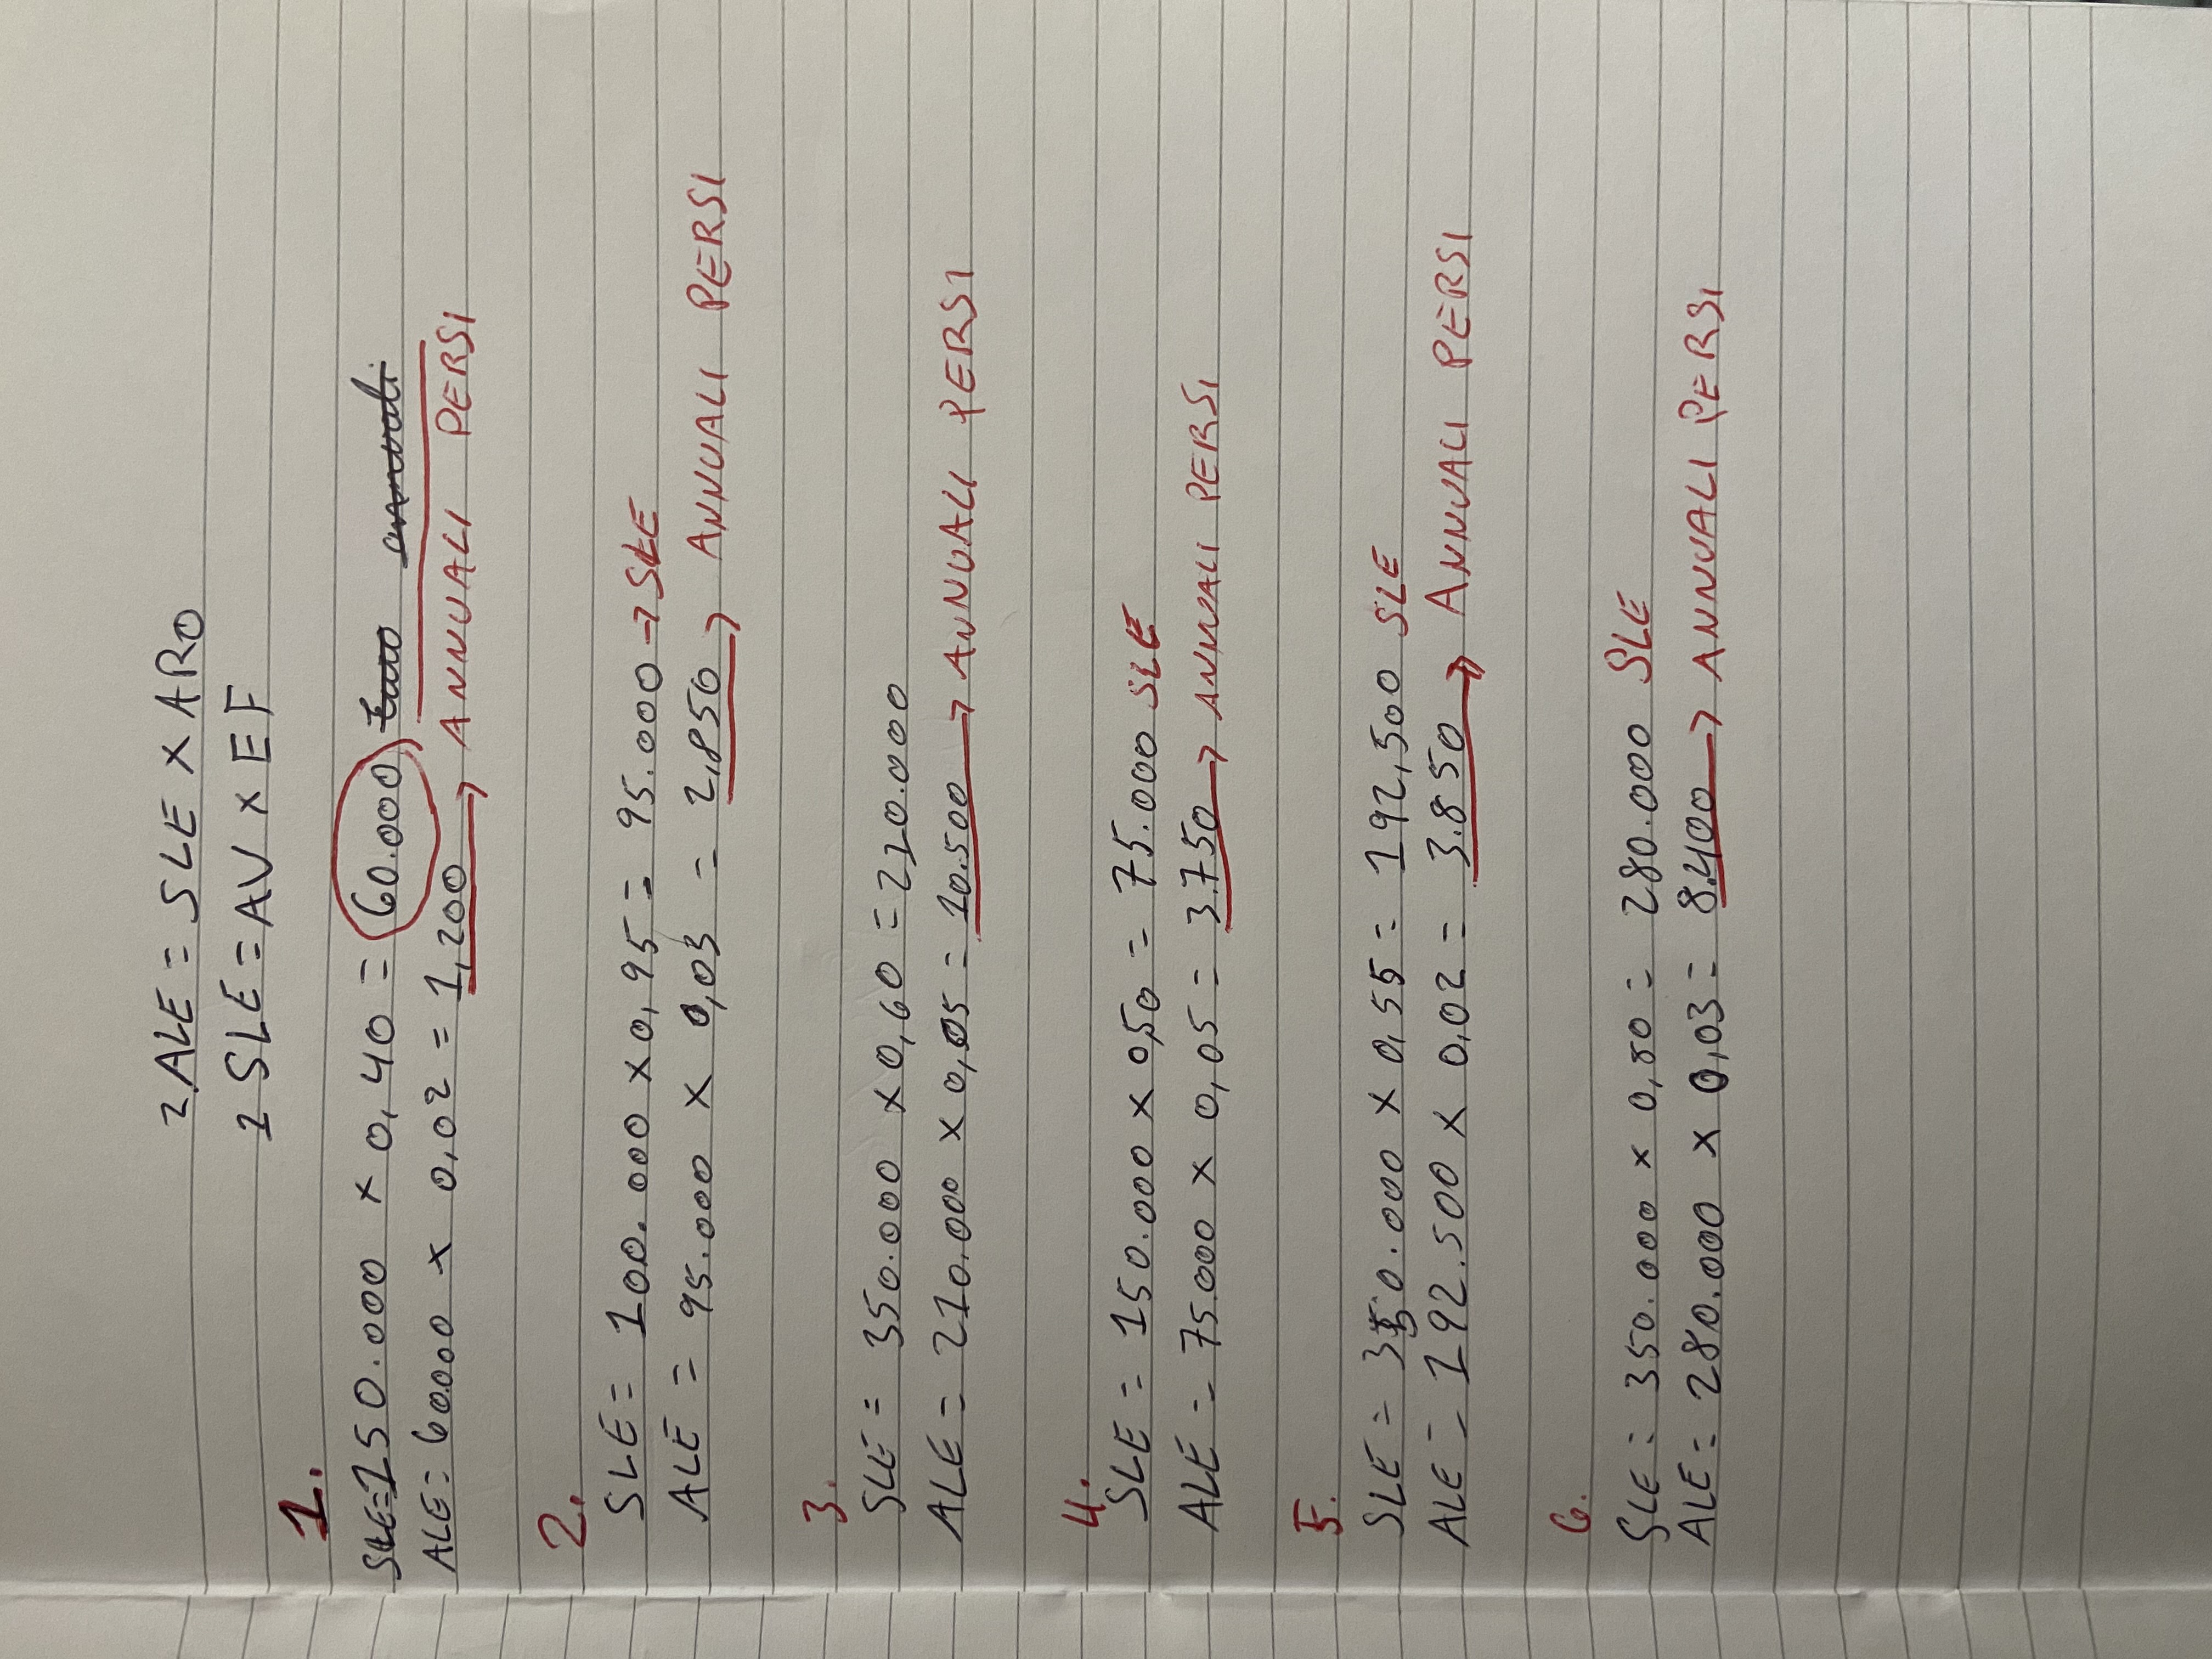 2 ALE = SLE X ARO
1 SLE = AV X EF
1.
SLE=150.000 x 0,40 = 60.000 Euro annuali
ALE = 60000 x 0,02 = 1,200 → ANNUALI PERSI
2.
SLE = 100.000 x 0,95 = 95.000 → SLE
ALE = 95.000 x 0,03 = 2,850 → ANNUALI PERSI
3.
SLE = 350.000 x 0,60 = 210.000
ALE = 210.000 x 0,05 = 10.500 → ANNUALI PERSI
4.
SLE = 150.000 x 0,50 = 75.000 SLE
ALE = 75.000 x 0,05 = 3.750 → ANNUALI PERSI
5.
SLE = 350.000 x 0,55 = 192,500 SLE
ALE = 192.500 x 0,02 = 3.850 → ANNUALI PERSI
6.
SLE = 350.000 x 0,80 = 280.000 SLE
ALE = 280.000 x 0,03 = 8.400 → ANNUALI PERSI